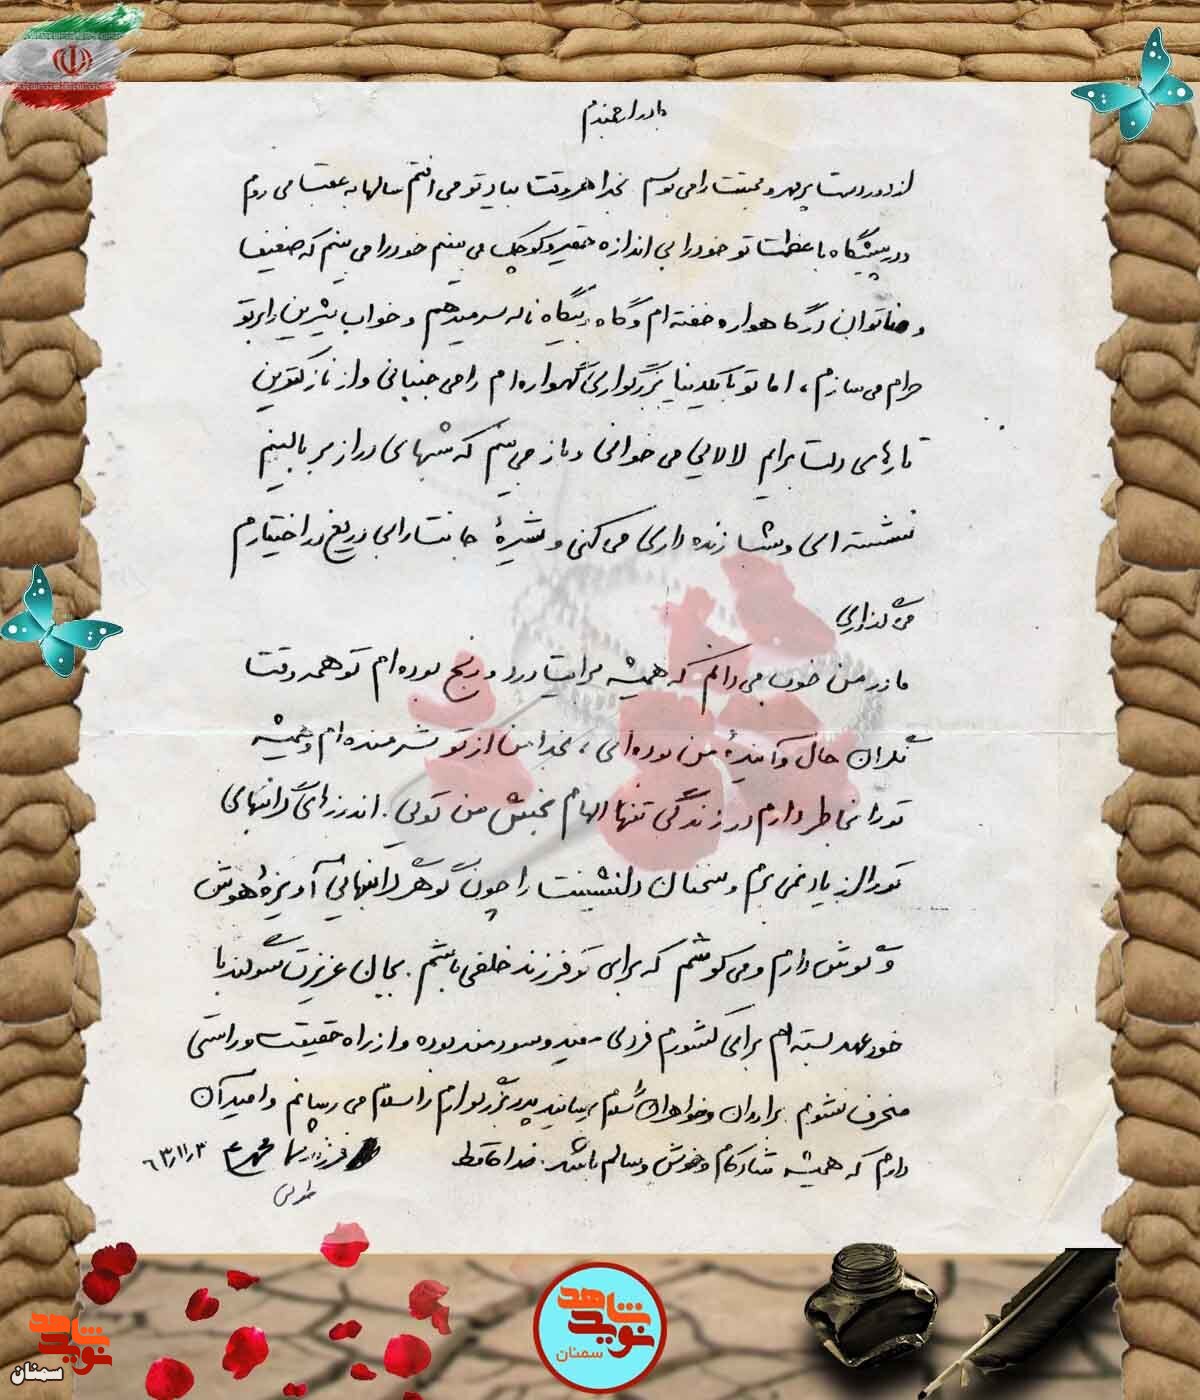 مادر ارجمندم
از دور دست پر مهر و محبتت را می بوسم بخدا هر وقت بیاد تو می افتم سالها به عقب می روم
در پیشگاه با عظمت تو خود را بی اندازه حقیر و کوچک می بینم خود را می بینم که ضعیف
و ناتوان در گاهواره خفته ام و گاه و بیگاه ناله سر میدهم و خواب شیرین را بر تو
حرام می سازم، اما تو با یکدنیا بزرگواری گهواره ام را می جنبانی و از نازکترین
تارهای دلت برایم لالایی می خوانی و باز می بینم که شبهای دراز بر بالینم
نشسته ای و شب زنده داری می کنی و شیرهٔ جانت را بی دریغ در اختیارم
می گذاری
مادر من خوب می دانم که همیشه برایت درد و رنج بوده ام تو همه وقت
نگران حال و آیندهٔ من بوده ای، بخدا من از تو شرمنده ام و همیشه
تو را بخاطر دارم در زندگی تنها الهام بخش من تویی. اندرزهای گرانبهای
تو را از یاد نمی برم و سخنان دلنشینت را چون گوهر گرانبهایی آویزهٔ هوش
و گوش دارم و می کوشم که برای تو فرزند خلفی باشم. بجان عزیزت سوگند با
خود عهد بسته ام برای کشورم فردی مفید و سودمند بوده و از راه حقیقت و راستی
منحرف نشوم برادران و خواهران سلام برسانید پدر بزرگوارم را سلام می رسانم و امید آن
دارم که همیشه شادکام و خوش و سالم باشید. خداحافظ فرزند شما ۶۳/۱۱/۳
نوید شاهد
سمنان
نوید شاهد
سمنان